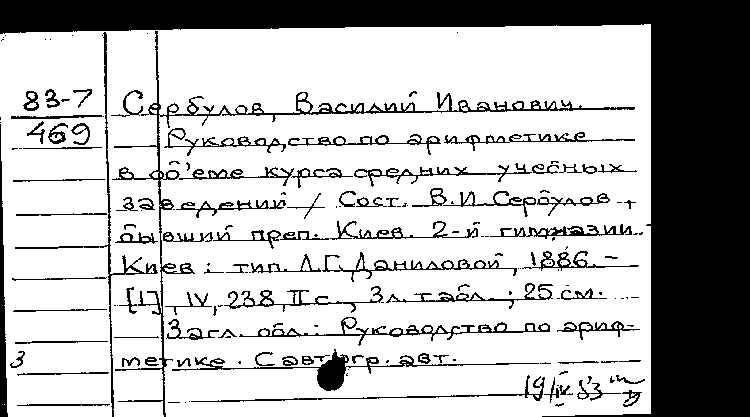 83-7 Сербулов, Василий Иванович.
469 Руководство по арифметике
в об'еме курса средних учебных
заведений / Сост. В.И. Сербулов,
бывший преп. Киев. 2-й гимназии.-
Киев: тип. Л.Г. Даниловой, 1886.-
[1], IV, 238, II с., 3 л. табл.; 25 см.
Загл. обл.: Руководство по ариф-
3 метике. С автогр. авт.
19/IV 83